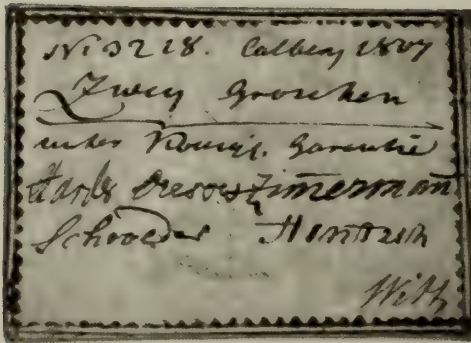 No 3218. Colberg 1807
Zwey Groschen
unter Königl. Garantie
Dresow Zimmermann
Schroeder